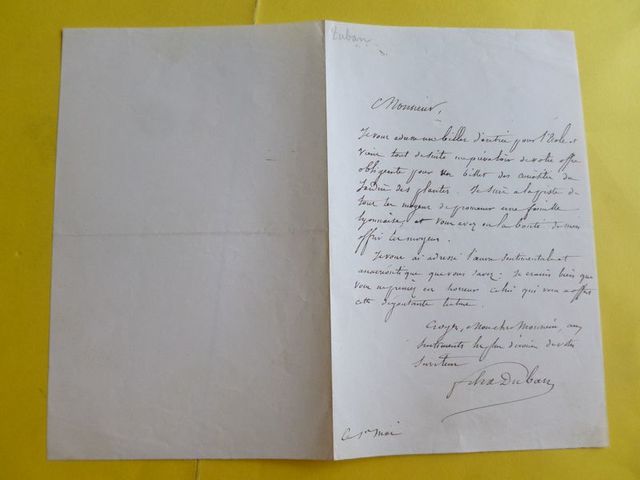 Duban
Monsieur,
Je vous adresse un billet d'entrée pour l'Ecole et
viens tout de suite me prévaloir de votre offre
obligeante pour un billet des
Jardin des plantes. Je suis à la piste de
tous les moyens de promener une famille
lyonnaise, et vous avez eu la bonté de m'en
offrir les moyens.
Je vous ai adressé l'auteur sentimental et
que vous savez. Je crains bien que
vous ne preniez en horreur celui qui vous a offert
cette dégoutante lecture.
Croyez, Mon cher Monsieur, aux
sentiments les plus dévoués de votre
serviteur
Duban
Ce 1er mai